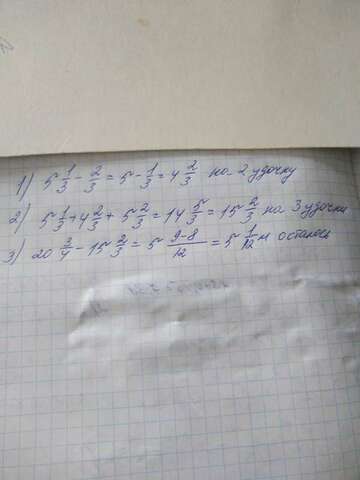 1) 5 1/3 - 2/3 = 5 - 1/3 = 4 2/3 на 2 удочку
2) 5 1/3 + 4 2/3 + 5 2/3 = 14 5/3 = 15 2/3 на 3 удочки
3) 20 3/4 - 15 2/3 = 5 9-8/12 = 5 1/12 м осталось